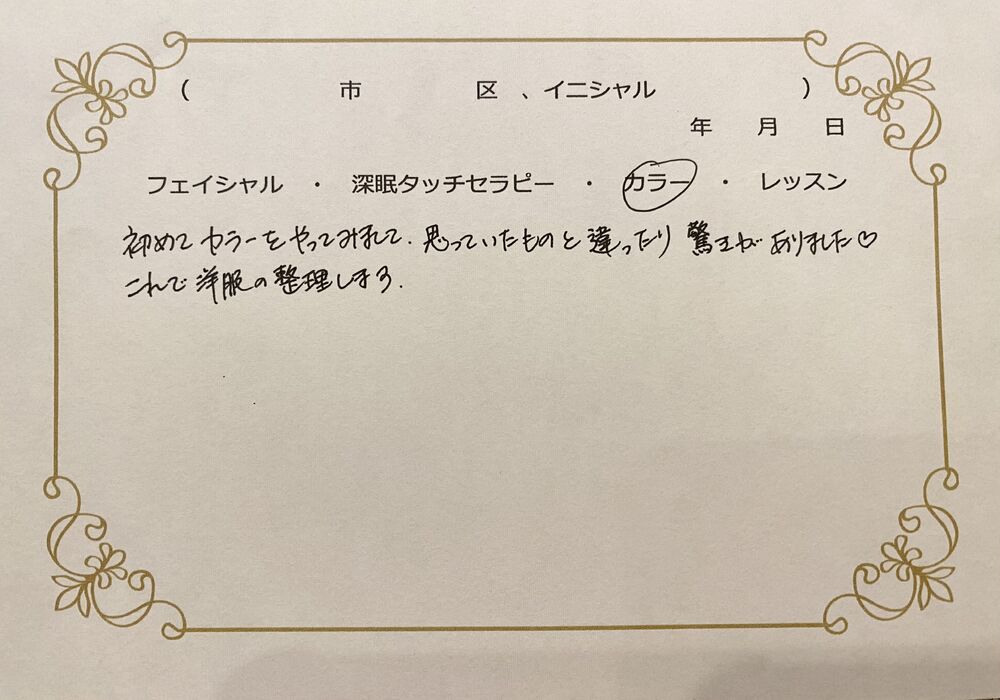 ( 市 区 、イニシャル )
年 月 日
フェイシャル ・ 深眠タッチセラピー ・ カラー ・ レッスン
初めてカラーをやってみれて、思っていたものと違ったり驚きがありました♡
これで洋服の整理します.